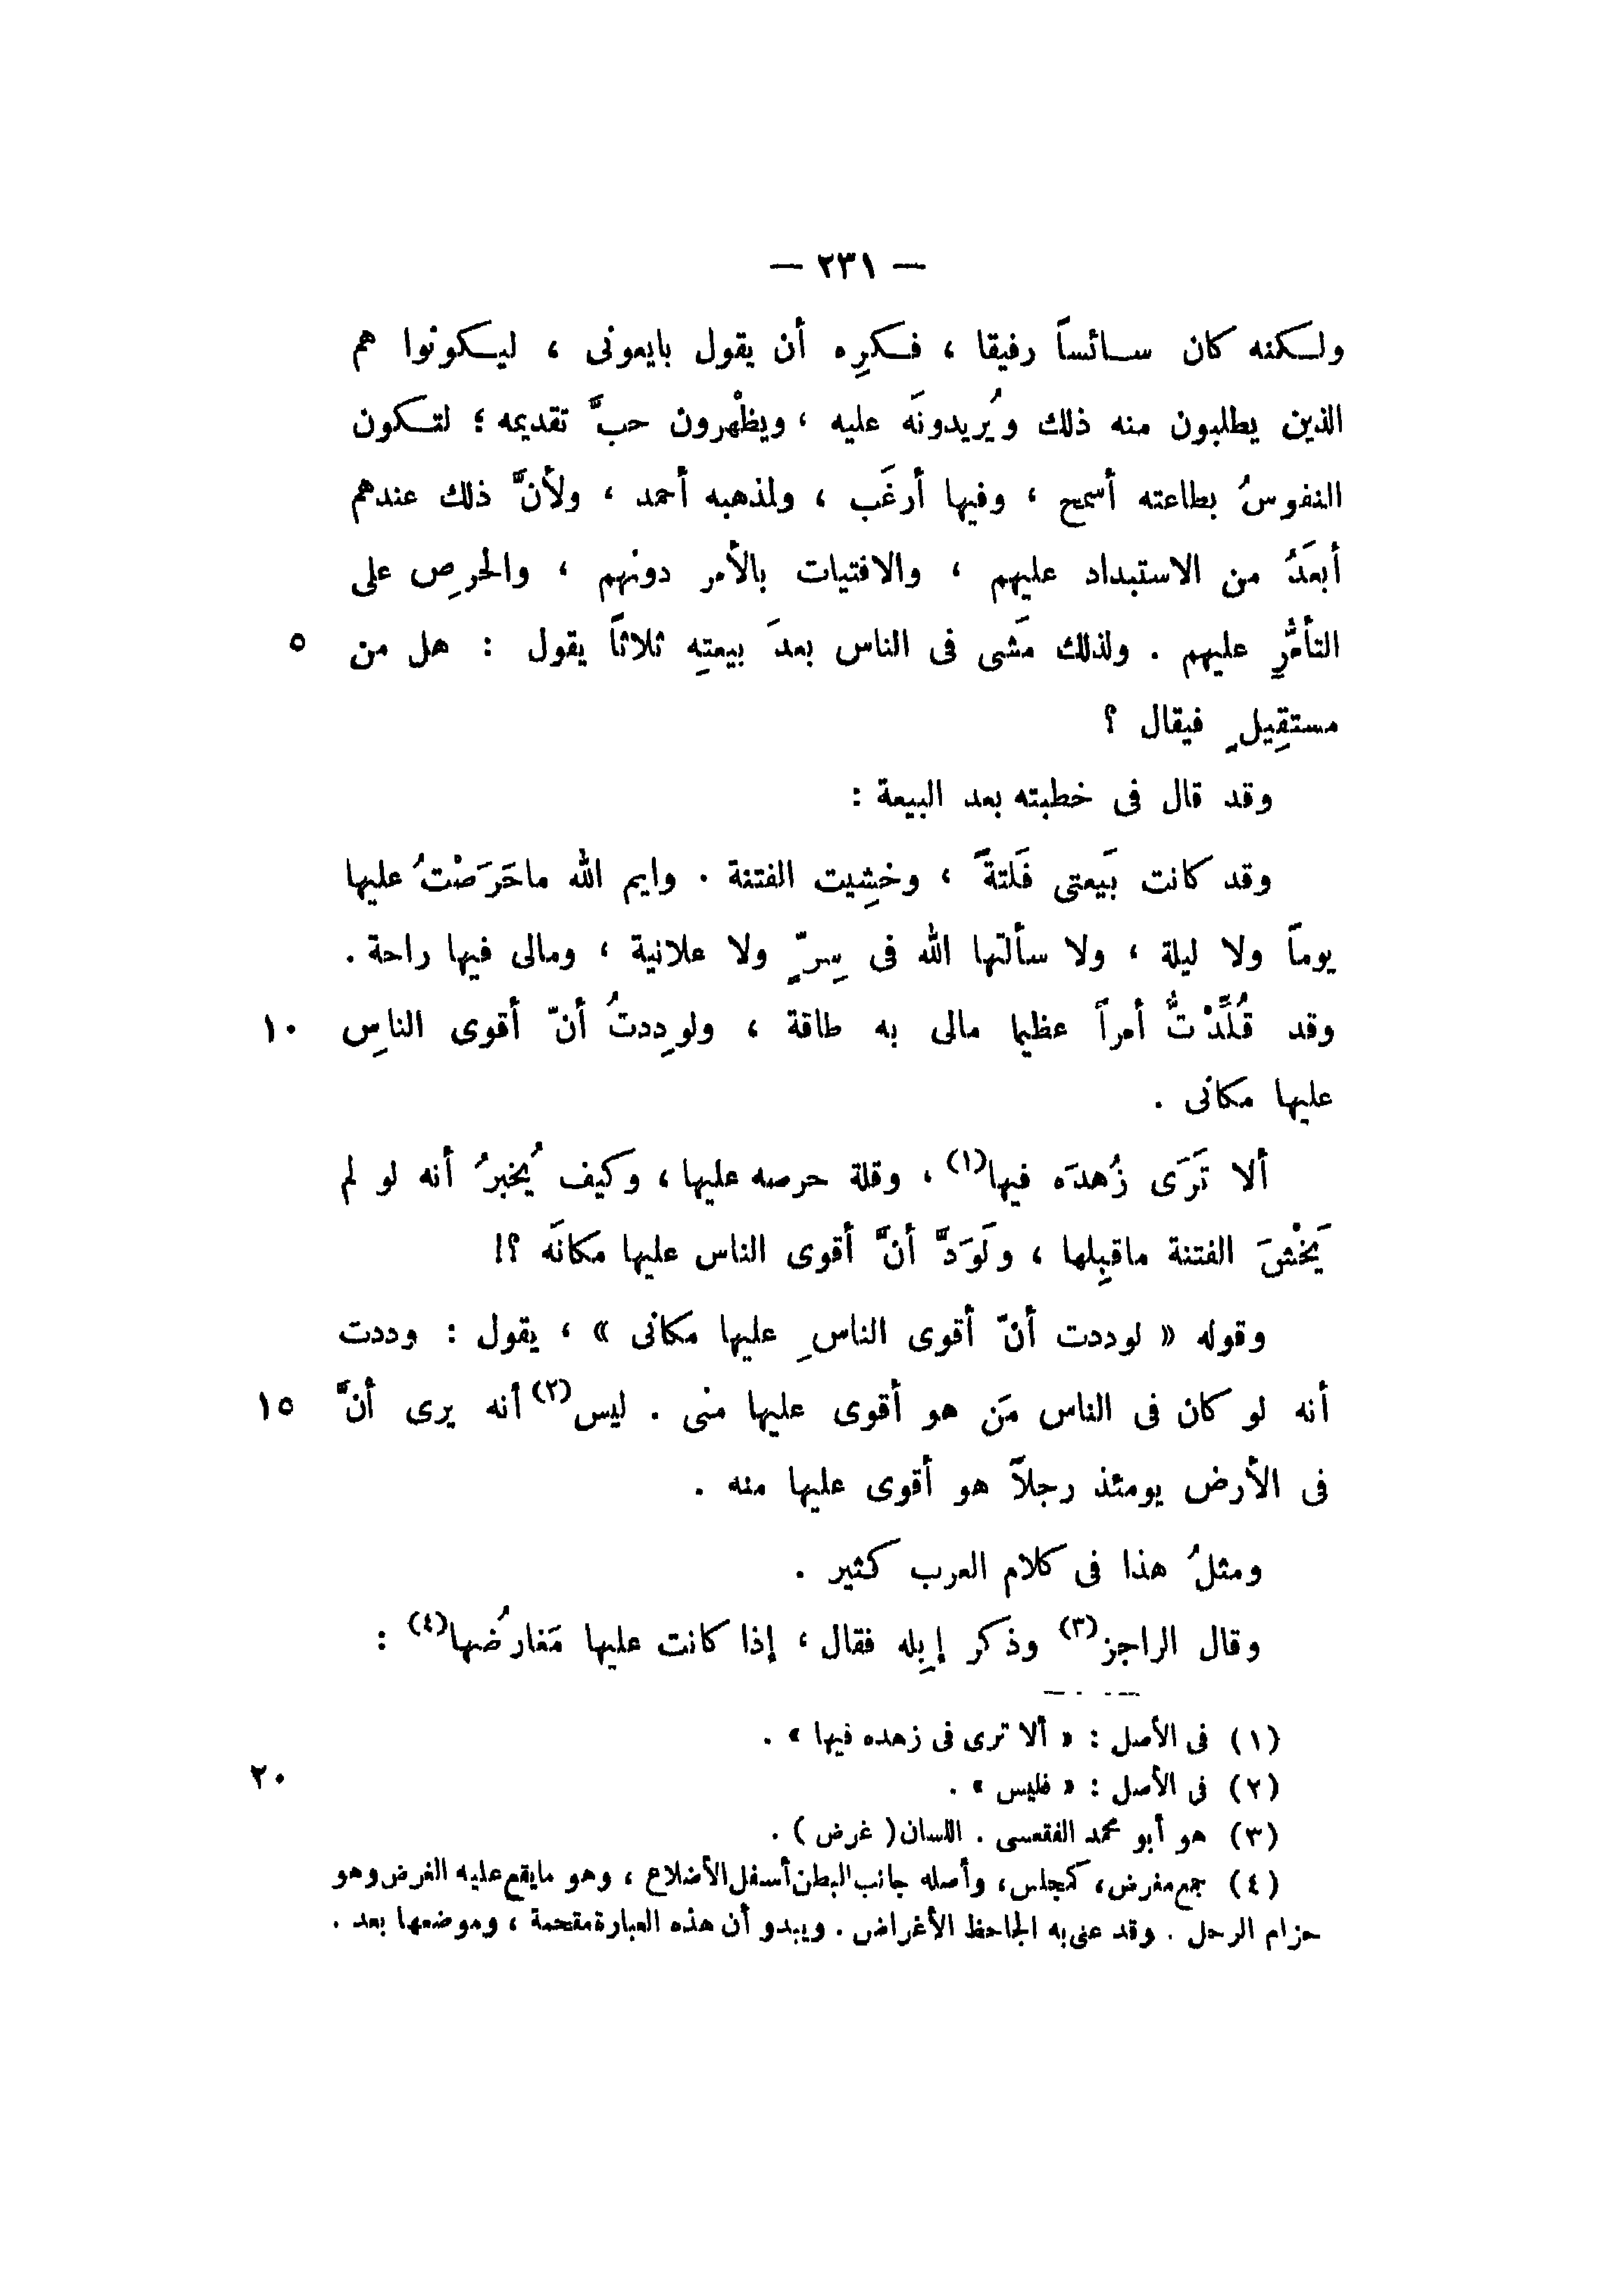 — ٢٣١ —
ولكنه كان سائساً رفيقا ، فكرِه أن يقول بايعونى ، ليكونوا هم
الذين يطلبون منه ذلك ويُريدونَه عليه ، ويظْهرون حبَّ تقديمه ؛ لتكون
النفوسُ بطاعته أسمح ، وفيها أرغَب ، ولمذهبه أحمد ، ولأنَّ ذلك عندهم
أبعَدُ من الاستبداد عليهم ، والافتيات بالأمر دونهم ، والحرِص على
التأمُّرِ عليهم . ولذلك مَشى فى الناس بعدَ بيعتِه ثلاثاً يقول : هل من ٥
مستقِيلٍ فيقال ؟
وقد قال فى خطبته بعد البيعة :
وقد كانت بَيعتى فَلتةً ، وخشِيت الفتنة . وايم الله ماحَرَصْتُ عليها
يوماً ولا ليلة ، ولا سألتها الله فى سِرٍّ ولا علانية ، ومالى فيها راحة .
وقد قُلِّدْتُ أمراً عظيما مالى به طاقة ، ولودِدتُ أنّ أقوى الناسِ ١٠
عليها مكانى .
ألا تَرَى زُهدَه فيها(١) ، وقلة حرصه عليها ، وكيف يُخبرُ أنه لو لم
يَخْشَ الفتنة ماقبِلها ، ولَوَدَّ أنَّ أقوى الناس عليها مكانَه ؟!
وقوله « لوددت أنّ أقوى الناسِ عليها مكانى » ، يقول : وددت
أنه لو كان فى الناس مَن هو أقوى عليها منى . ليس(٢) أنه يرى أنَّ ١٥
فى الأرض يومئذ رجلاً هو أقوى عليها منه .
ومثلُ هذا فى كلام العرب كثير .
وقال الراجز(٣) وذكر إبِله فقال ، إذا كانت عليها مَغارضُها(٤) :
(١) فى الأصل : « ألا ترى فى زهده فيها » .
(٢) فى الأصل : « فليس » . ٢٠
(٣) هو أبو محمد الفقعسى . اللسان ( غرض ) .
(٤) جمع مغرض ، كمجلس ، وأصله جانب البطن أسفل الأضلاع ، وهو مايقع عليه الغرض وهو
حزام الرحل . وقد عنى به الجاحظ الأغراض . ويبدو أن هذه العبارة مقحمة ، وموضعها بعد .